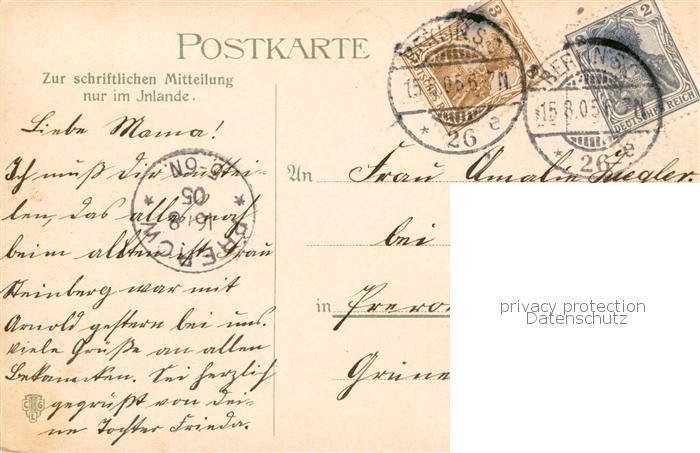 POSTKARTE
Zur schriftlichen Mitteilung
nur im Jnlande.
Liebe Mama!
Ich muß dir mittei-
len, das alles noch
beim allten ist. Frau
Steinberg war mit
Arnold gestern bei uns.
Viele Grüße an allen
Bekannten. Sei herzlich
gegrüßt von dei-
ne Tochter Frieda.
BERLIN S.O.
15.8.05.6-7N
* 26 e
3
BERLIN S.O.
15.8.05.6-7N
* 26 e
2
DEUTSCHES REICH
PREROW
16 8
05
An Frau Amalie Ziegler.
bei
in Prero
Grüne
privacy protection
Datenschutz
CGL